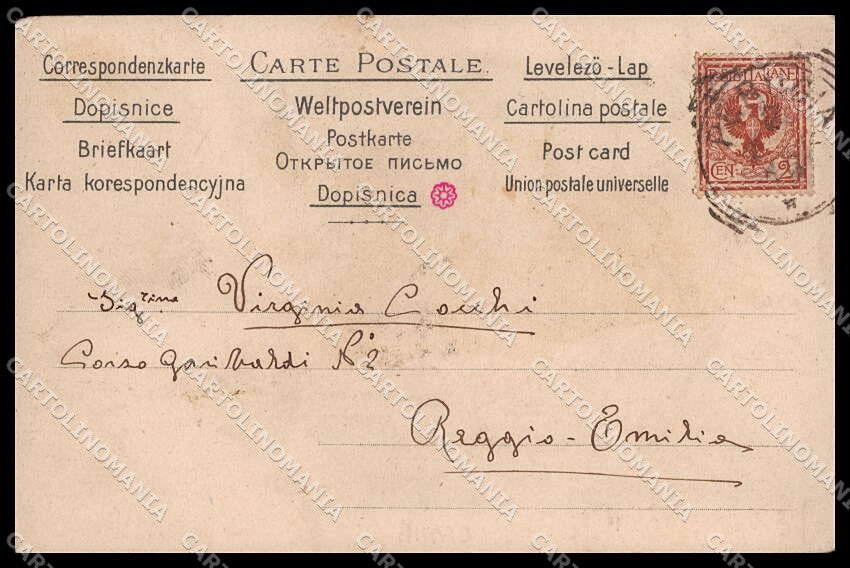 Correspondenzkarte
Dopisnice
Briefkaart
Karta korespondencyjna
CARTE POSTALE.
Weltpostverein
Postkarte
ОТКРЫТОЕ ПИСЬМО
Dopisnica
Levelezö - Lap
Cartolina postale
Post card
Union postale universelle
POSTE ITALIANE
CEN. 2
Sigrina Virginia Cocchi
Corso Garibaldi N° 2
Reggio-Emilia
CARTOLINOMANIA